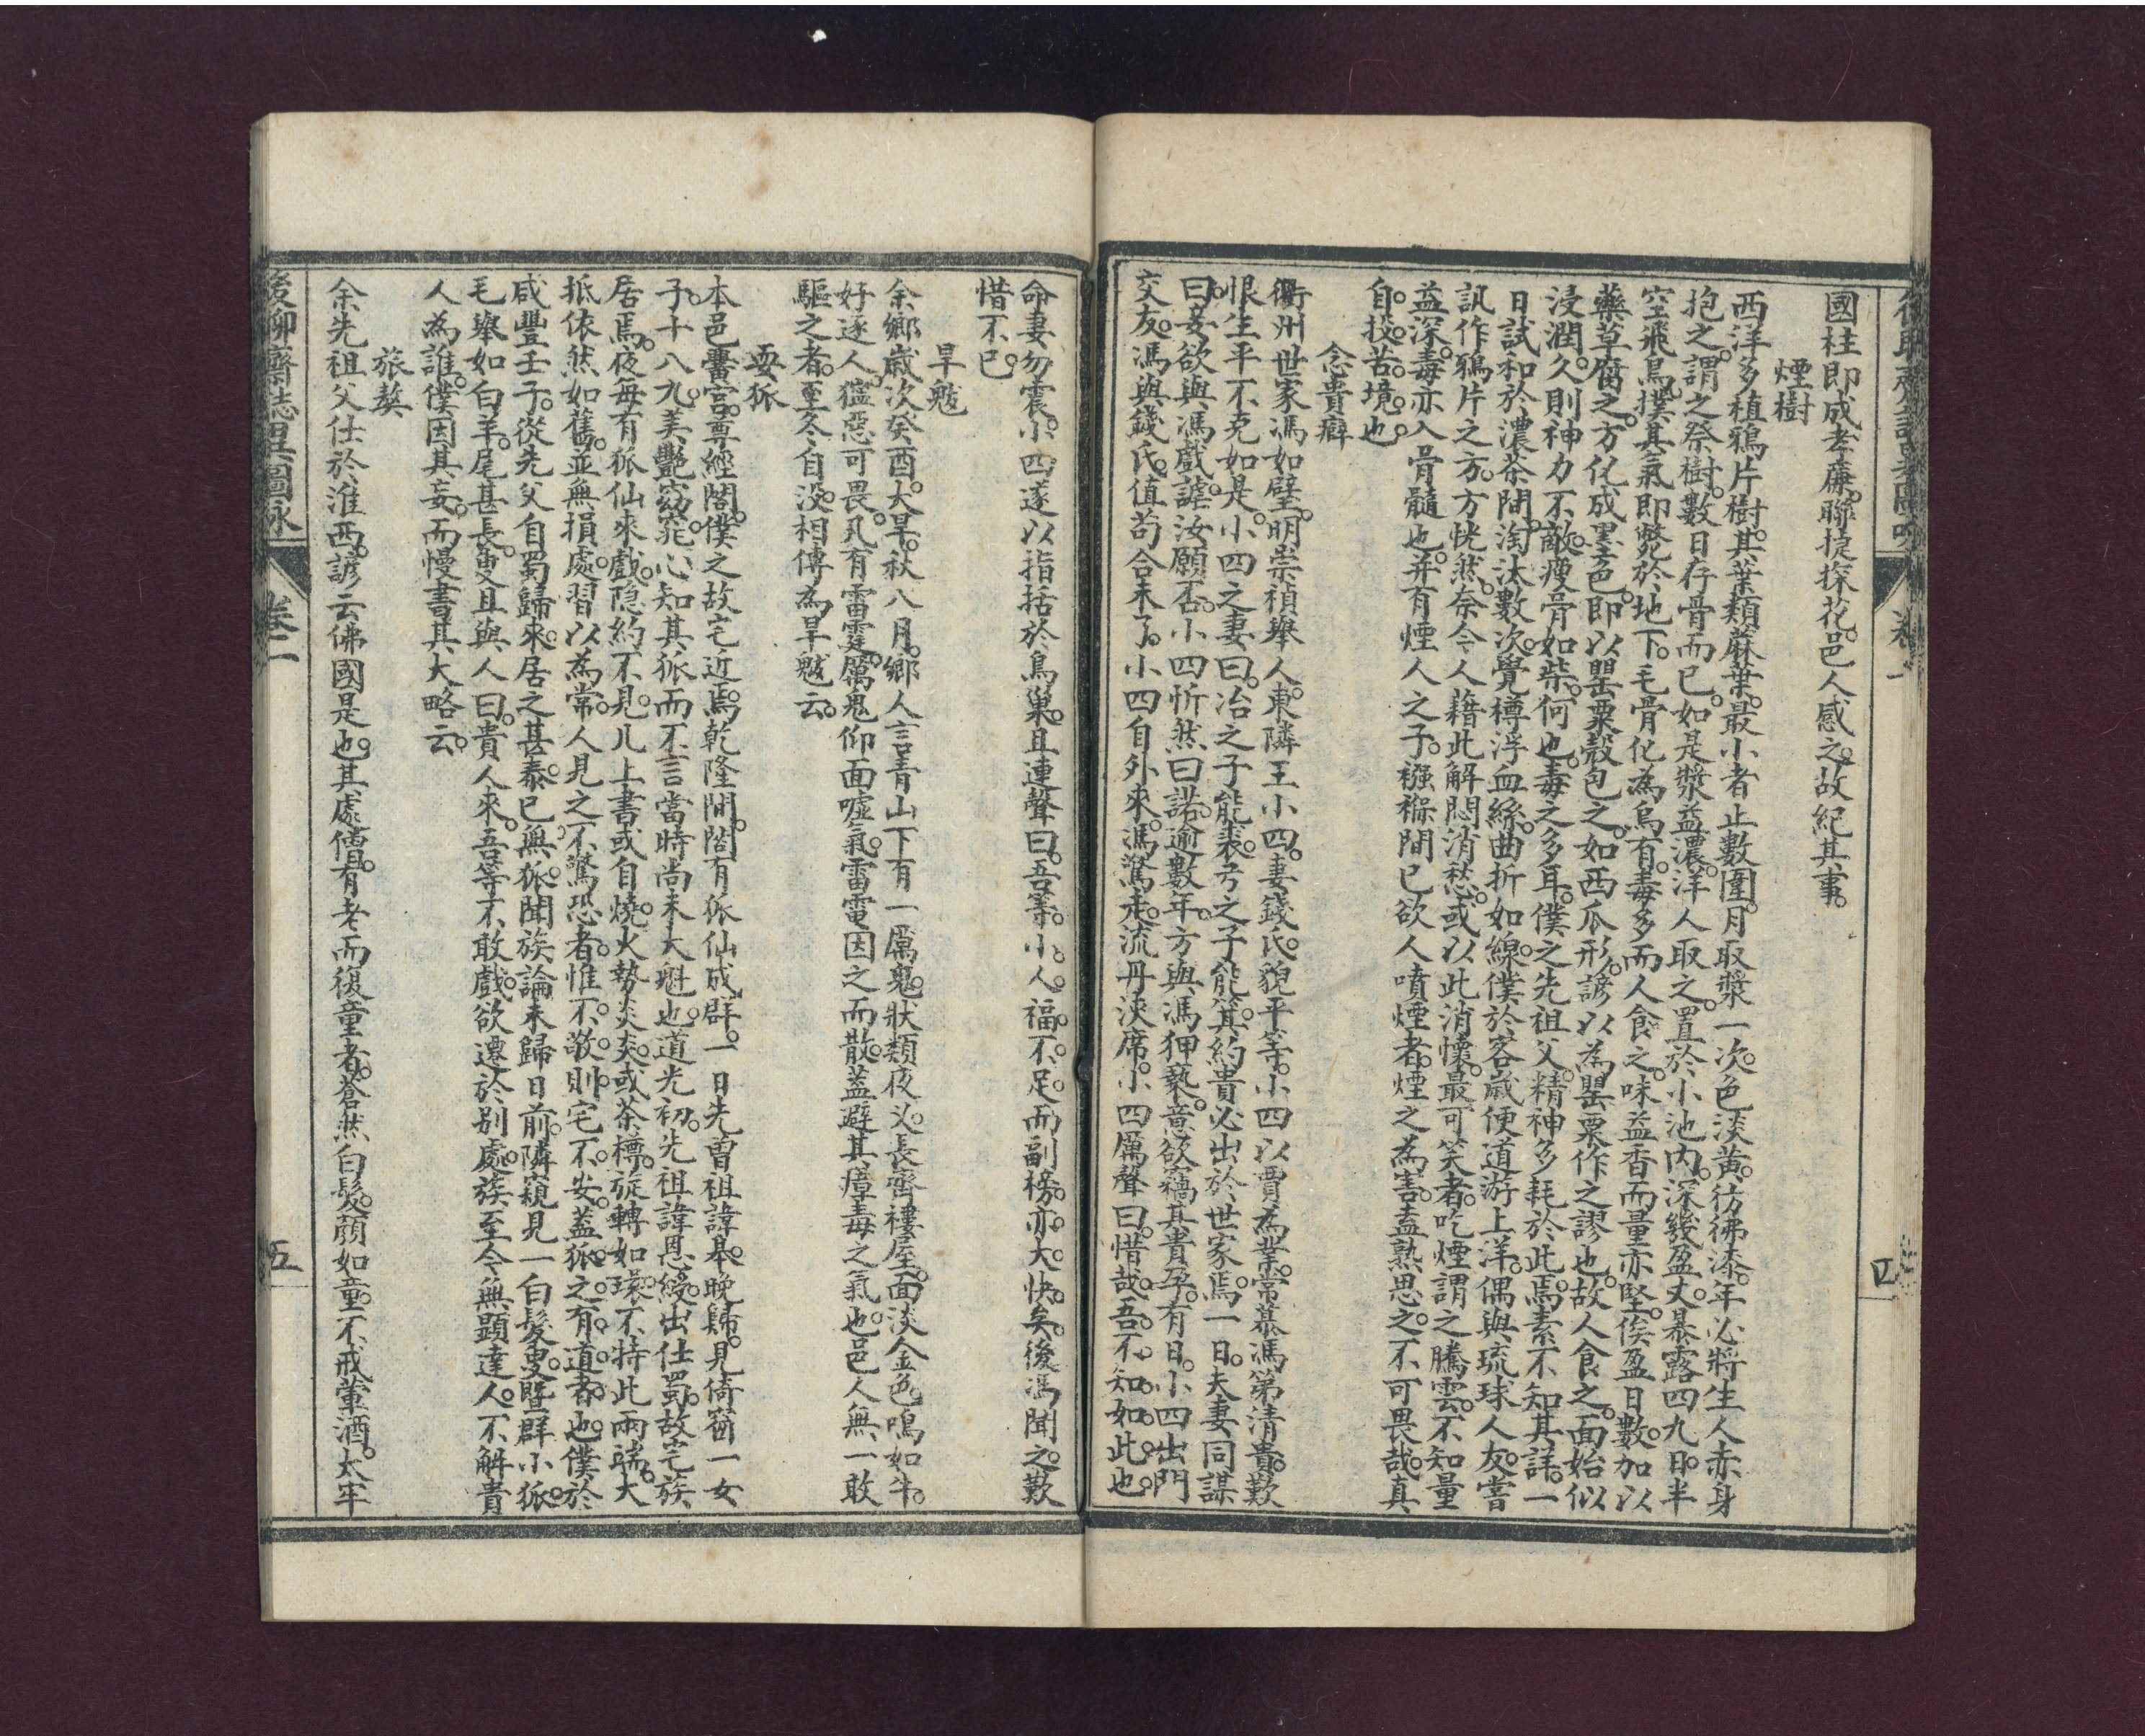 國柱即成孝廉聯捷探花邑人感之故紀其事
煙樹
西洋多植鴉片樹其葉類蔴葉最小者止數圍月取漿一次色淡黃彷彿漆年必將生人赤身
抱之謂之祭樹數日存骨而已如是漿益濃洋人取之置於小池內深幾盈丈暴露四九日半
空飛鳥撲其氣即斃於地下毛骨化為烏有毒多而人食之味益香而量亦堅俟盈日數加以
藥草腐之方化成黑色即以罌粟殼包之如西瓜形諺以為罌粟作之謬也故人食之面始似
浸潤久則神力不敵瘦骨如柴何也毒之多耳僕之先祖父精神多耗於此焉素不知其詳一
日試和於濃茶間淘汰數次覺樽浮血絲曲折如線僕於客歲便道游上洋偶與琉球人友嘗
訊作鴉片之方方恍然奈今人藉此解悶消愁或以此消懷最可笑者吃煙謂之騰雲不知量
益深毒亦入骨髓也并有煙人之子襁褓間已欲人噴煙者煙之為害盍熟思之不可畏哉真
自投苦境也
念貴癖
衢州世家馮如壁明崇禎舉人東隣王小四妻錢氏貌平等小四以賈為業常慕馮第清貴歎
恨生平不克如是小四之妻曰冶之子能裘弓之子能箕約貴必出於世家焉一日夫妻同謀
曰妾欲與馮戲謔汝願否小四忻然曰諾逾數年方與馮狎褻意欲竊其貴孕有日小四出門
交友馮與錢氏值苟合未了小四自外來馮驚走流丹浹席小四厲聲曰惜哉吾不知如此也
命妻勿震小四遂以指括於鳥巢且連聲曰吾等小人福不足而副榜亦大快矣後馮聞之歎
惜不已
旱魃
余鄉歲次癸酉大旱秋八月鄉人言青山下有一厲鬼狀類夜义長齊樓屋面淡金色鳴如牛
好逐人獰惡可畏凡有雷霆厲鬼仰面噓氣雷電因之而散蓋避其瘴毒之氣也邑人無一敢
驅之者至冬自沒相傳為旱魃云
耍狐
本邑黌宮尊經閣僕之故宅近焉乾隆間閣有狐仙成群一日先曾祖諱㬫晚歸見倚窗一女
子十八九美艷窈窕心知其狐而不言當時尚未大魁也道光初先祖諱恩綬出仕蜀故宅族
居焉夜每有狐仙來戲隐約不見几上書或自燒火勢炎炎或茶樽旋轉如環不特此兩端大
抵依然如舊並無損處習以為常人見之不驚恐者惟不敬則宅不安蓋狐之有道者也僕於
咸豐壬子從先父自蜀歸來居之甚泰已無狐聞族論未歸日前隣窺見一白髮叟暨群小狐
毛舉如白羊尾甚長叟且與人曰貴人來吾等不敢戲欲遷於别處族至今無顕達人不解貴
人為誰僕因其妄而慢書其大略云
旅獒
余先祖父仕於淮西諺云佛國是也其處僧有老而復童者蒼然白髮顔如童不戒葷酒太牢
後聊齋誌異圖咏
卷二
五